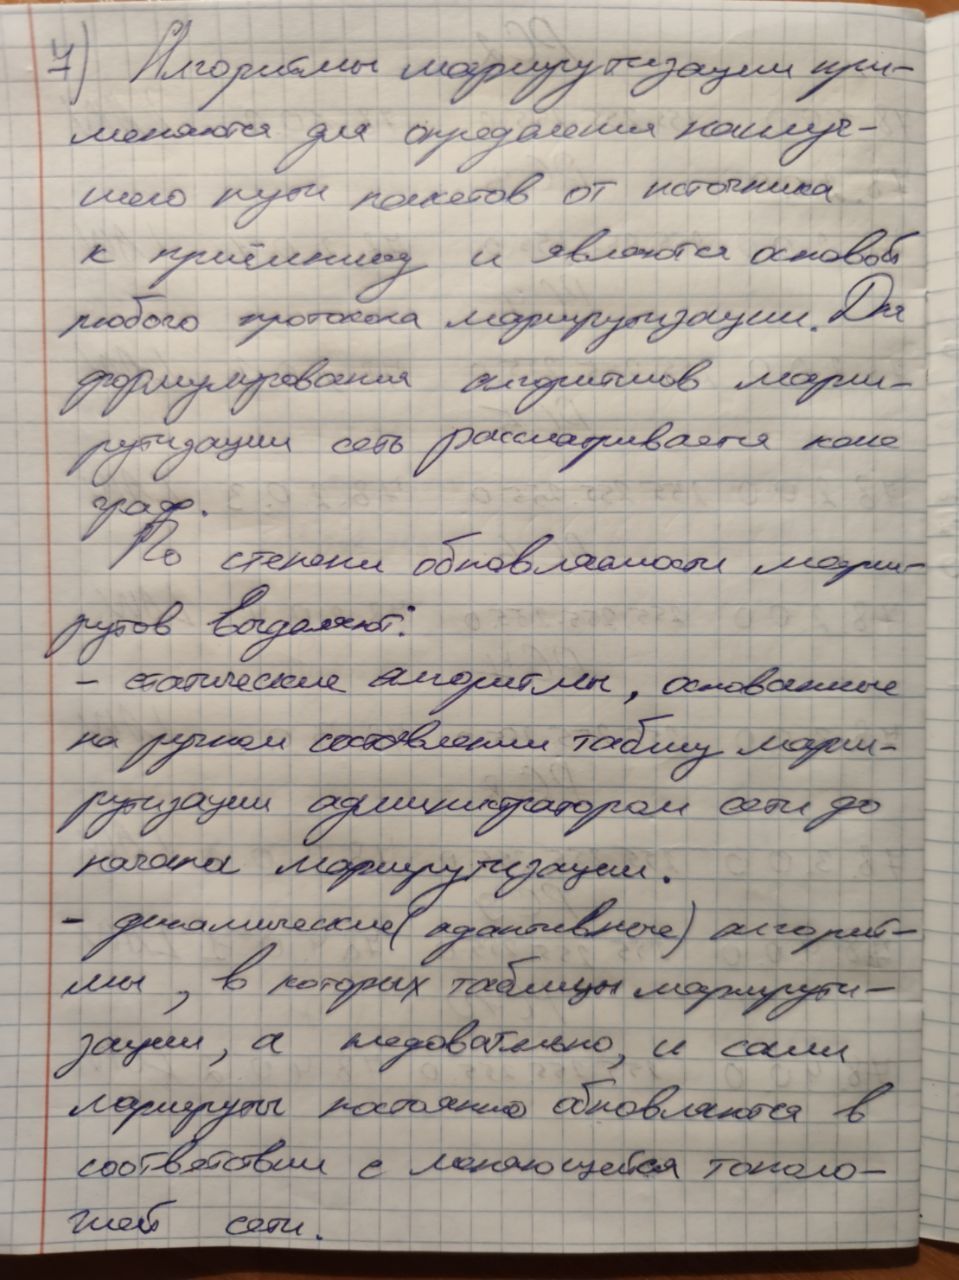 7) Алгоритмы маршрутизации при-
меняются для определения наилуч-
шего пути пакетов от источника
к приёмнику и являются основой
любого протокола маршрутизации. Для
формулирования алгоритмов марш-
рутизации сеть рассматривается как
граф.
По степени обновляемости марш-
рутов выделяют:
- статические алгоритмы, основанные
на ручном составлении таблиц марш-
рутизации администратором сети до
начала маршрутизации.
- динамические (адаптивные) алгорит-
мы, в которых таблицы маршрути-
зации, а следовательно, и сами
маршруты постоянно обновляются в
соответствии с меняющейся тополо-
гией сети.